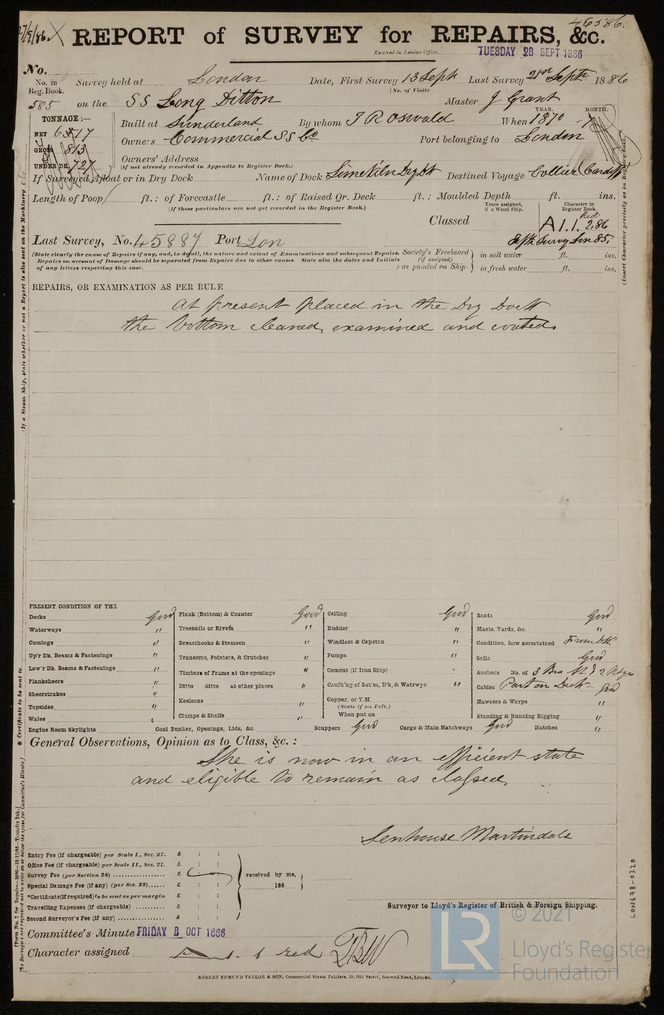 46586.
27/9/86 X REPORT of SURVEY for REPAIRS, &c.
Received in London Office, TUESDAY 28 SEPT 1886
No.
No. in Reg. Book. Survey held at London Date, First Survey 13 Sept Last Survey 21st Septr 1886
(No. of Visits
585 on the SS Long Ditton Master J Grant
TONNAGE:— Built at Sunderland By whom When YEAR. 1870 MONTH. 7
NET 517
GROSS 813 Owners Commercial SS Co Port belonging to London
UNDER DK. 727 Owners' Address
(If not already recorded in Appendix to Register Book.)
If Surveyed Afloat or in Dry Dock Name of Dock Limekiln Dry Dk Destined Voyage Collier Cardiff
Length of Poop ft.: of Forecastle ft.: of Raised Qr. Deck ft.: Moulded Depth ft. ins.
(If these particulars are not yet recorded in the Register Book.)
Classed Years assigned, if a Wood Ship. Character in Register Book.
A1.1. Red 2.86
Last Survey, No. 45887 Port Lon
(State clearly the cause of Repairs if any, and, in detail, the nature and extent of Examinations and subsequent Repairs. Society's Freeboard in salt water ft. ins.
Repairs on account of Damage should be separated from Repairs due to other causes. State also the dates and Initials (if assigned)
of any letters respecting this case. as painted on Ship in fresh water ft. ins.
REPAIRS, OR EXAMINATION AS PER RULE
At present placed in the Dry Dock
the bottom cleaned, examined and coated.
PRESENT CONDITION OF THE
Decks Good Plank (Bottom) & Counter Good Ceiling Good Boats Good
Waterways " Treenails or Rivets " Rudder " Masts, Yards, &c. "
Comings " Breasthooks & Stemson " Windlass & Capstan " Condition, how ascertained From Dk
Up'r Dk. Beams & Fastenings " Transoms, Pointers, & Crutches " Pumps " Sails Good
Low'r Dk. Beams & Fastenings " Timbers of Frame at the openings " Cement (if Iron Ship) Anchors No. of 3
Planksheers " Ditto ditto at other places " Caulk'ng of Bot'm, D'k, & Watrwys " Cables Part on Deck Good
Sheerstrakes " Keelsons " Copper, or Y.M. Hawsers & Warps "
Topsides " Clamps & Shelfs " (State if on Felt.) Standing & Running Rigging "
Wales " When put on
Engine Room Skylights Coal Bunker, Openings, Lids, &c. Scuppers Good Cargo & Main Hatchways Good Hatches "
General Observations, Opinion as to Class, &c. :
She is now in an efficient state
and eligible to remain as classed.
Senhouse Martindale
Entry Fee (if chargeable) per Scale I., Sec. 27. £ : :
Office Fee (if chargeable) per Scale II., Sec. 27. £ : :
Survey Fee (per Section 28) £ : :
Special Damage Fee (if any) (per Sec. 28) £ : : received by me,
*Certificate (if required) to be sent as per margin £ : : 188
Travelling Expenses (if chargeable) £ : :
Second Surveyor's Fee (if any) £ : :
Surveyor to Lloyd's Register of British & Foreign Shipping.
Committee's Minute FRIDAY 8 OCT 1886
Character assigned A 1. 1 red
ROBERT EDMUND TAYLOR & SON, Commercial Steam Printers, 19, Old Street, Goswell Road, London.
LON678-0320
LR
© 2021
Lloyd's Register
Foundation